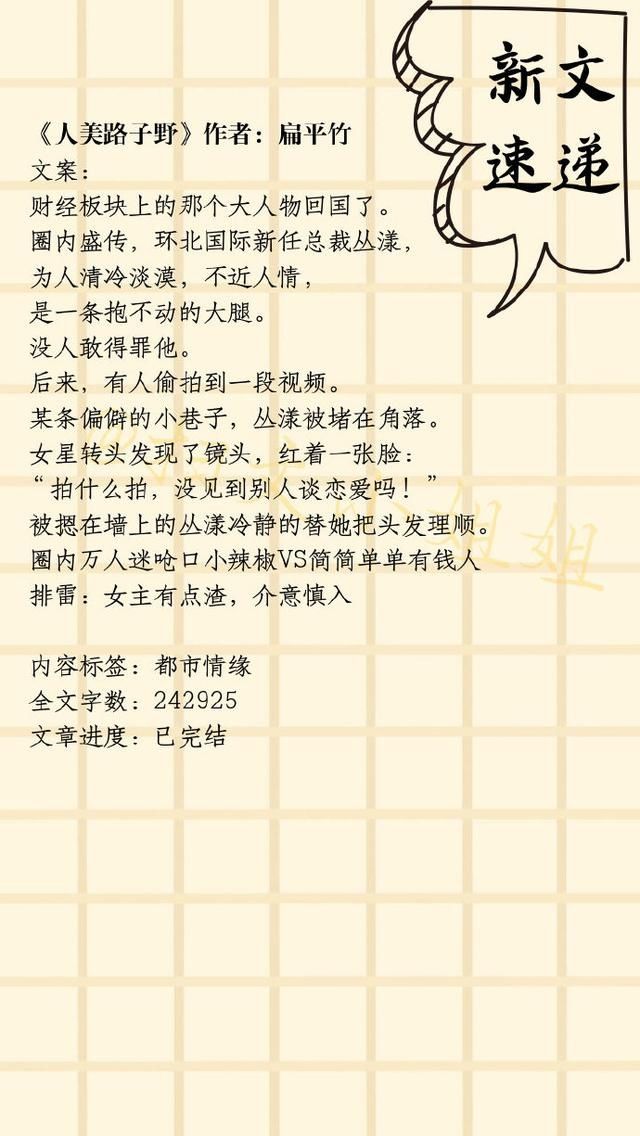 新文
速递
《人美路子野》作者：扁平竹
文案：
财经板块上的那个大人物回国了。
圈内盛传，环北国际新任总裁丛漾，
为人清冷淡漠，不近人情，
是一条抱不动的大腿。
没人敢得罪他。
后来，有人偷拍到一段视频。
某条偏僻的小巷子，丛漾被堵在角落。
女星转头发现了镜头，红着一张脸：
“拍什么拍，没见到别人谈恋爱吗！”
被摁在墙上的丛漾冷静的替她把头发理顺。
圈内万人迷呛口小辣椒VS简简单单有钱人
排雷：女主有点渣，介意慎入
内容标签：都市情缘
全文字数：242925
文章进度：已完结